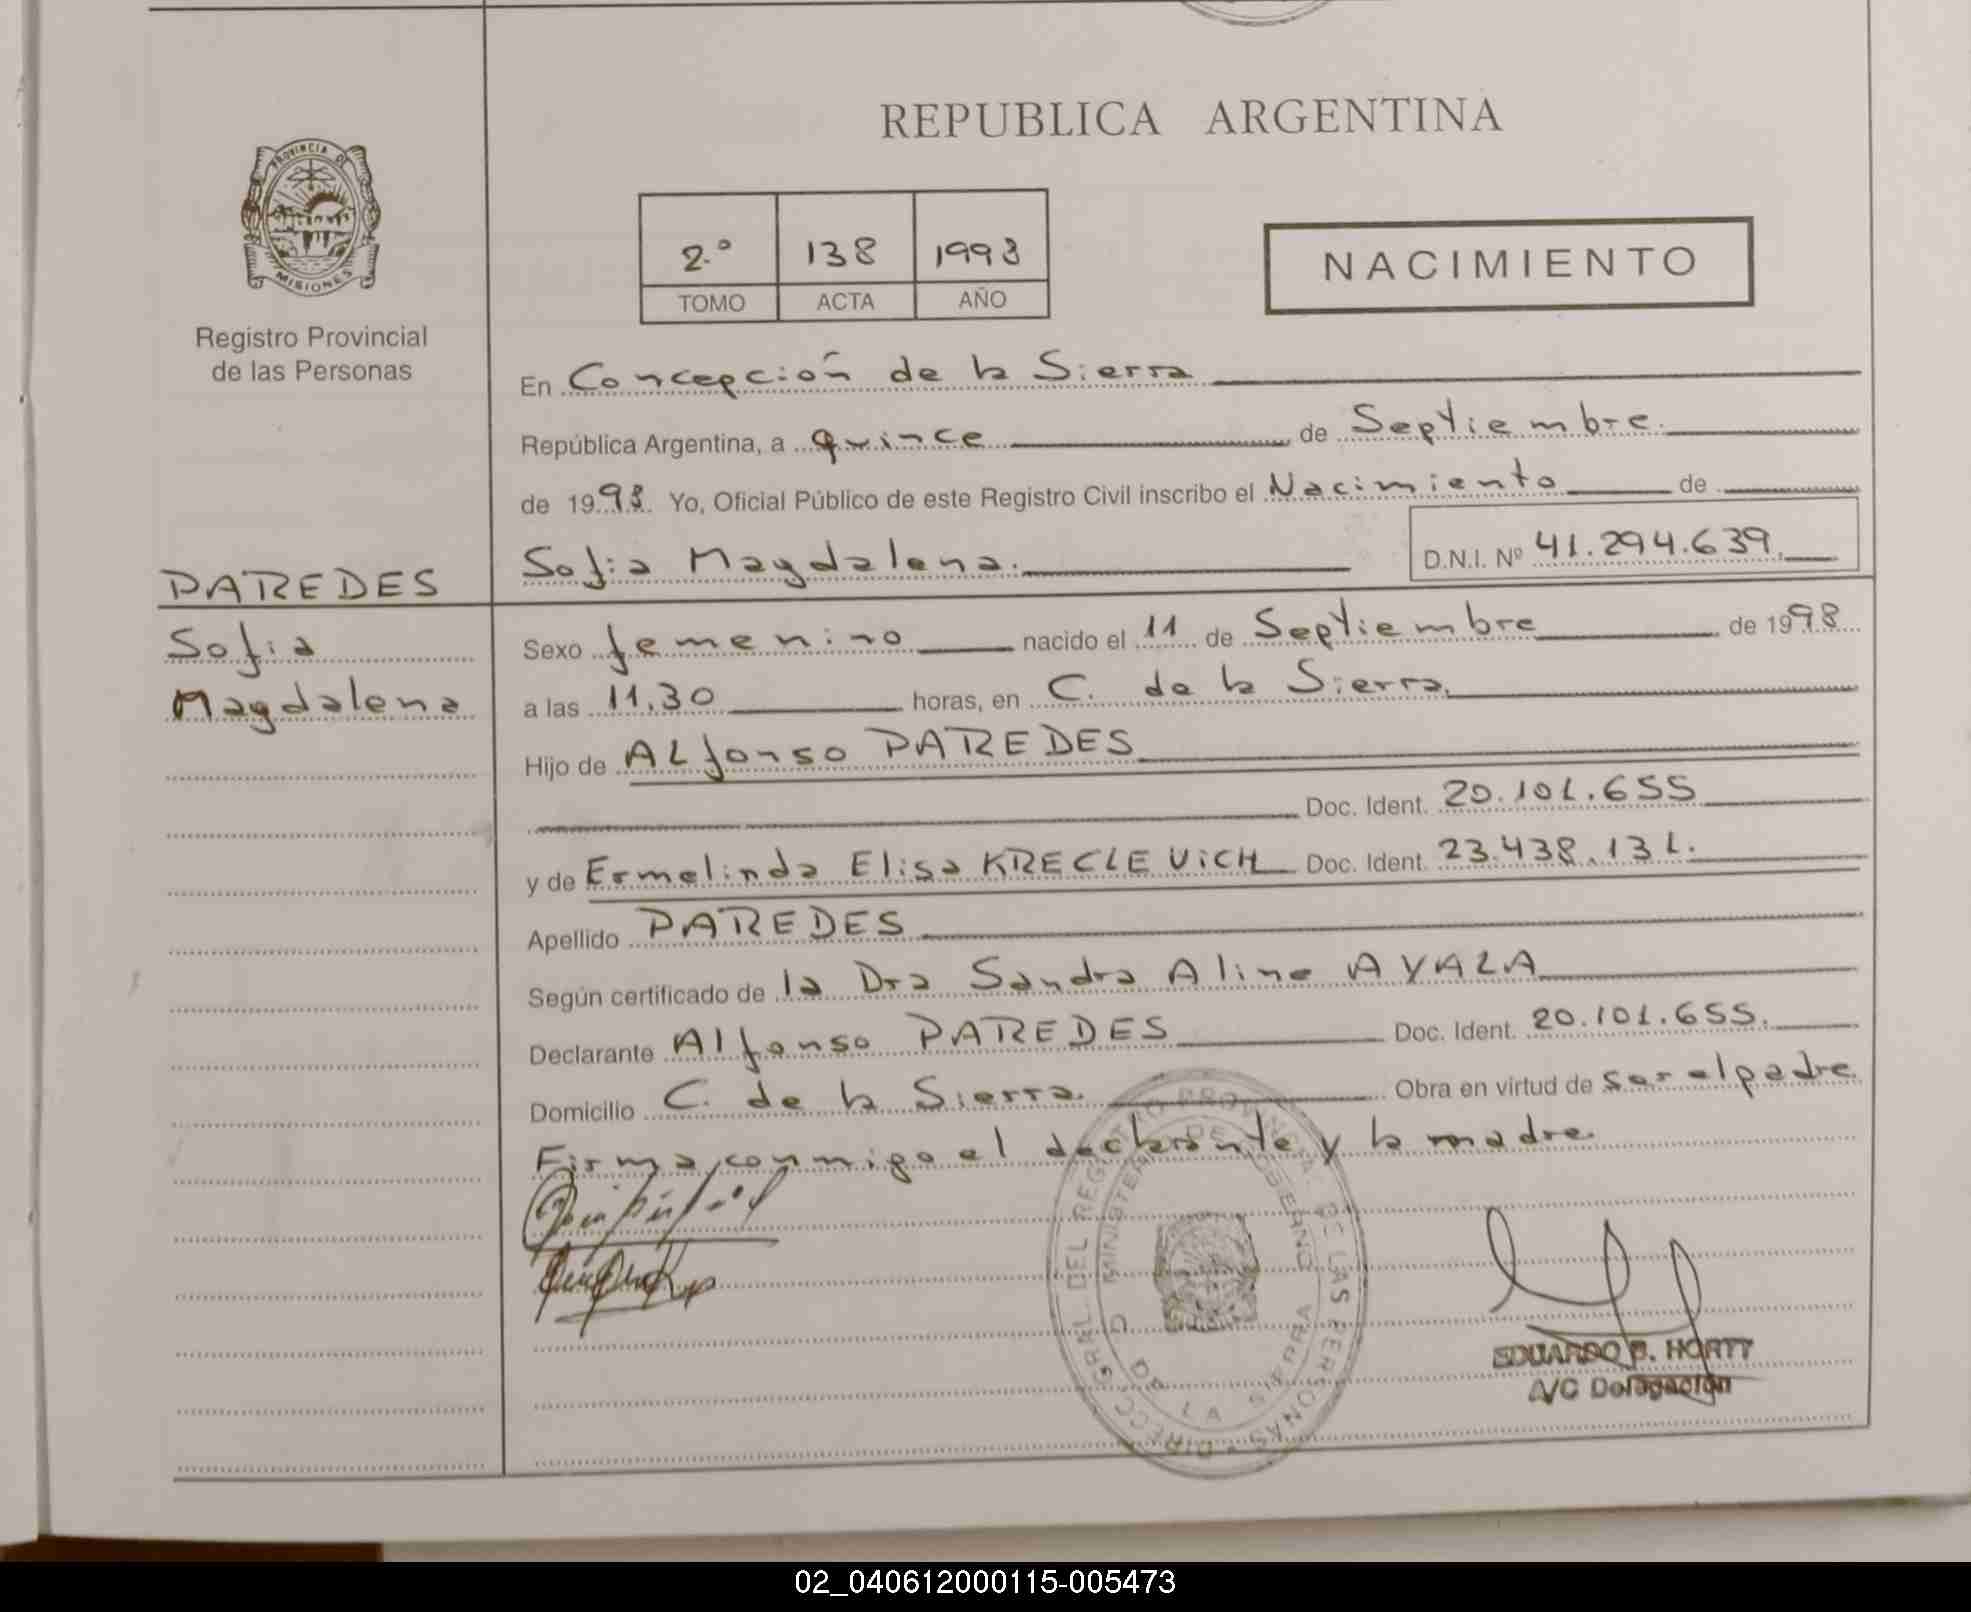 REPUBLICA ARGENTINA
PROVINCIA DE
MISIONES
Registro Provincial
de las Personas
2.º 138 1998
TOMO ACTA AÑO
NACIMIENTO
En Concepción de la Sierra
República Argentina, a quince de Septiembre.
de 1998. Yo, Oficial Público de este Registro Civil inscribo el Nacimiento de
Sofia Magdalena. D.N.I. Nº 41.294.639.
PAREDES
Sofia
Magdalena
Sexo femenino nacido el 11 de Septiembre de 1998
a las 11.30 horas, en C. de la Sierra.
Hijo de ALfonso PAREDES
Doc. Ident. 20.101.655
y de Ermelinda Elisa KRECLEVICH Doc. Ident. 23.438.131.
Apellido PAREDES
Según certificado de la Dra Sandra Aline AYALA
Declarante Alfonso PAREDES Doc. Ident. 20.101.655.
Domicilio C. de la Sierra. Obra en virtud de ser el padre.
Firma conmigo el declarante y la madre.
DIRECC. GRAL. DEL REGISTRO PROVINCIAL DE LAS PERSONAS
MINISTERIO DE GOBIERNO
DE LA SIERRA
EDUARDO B. HORTT
A/C Delegación
02_040612000115-005473